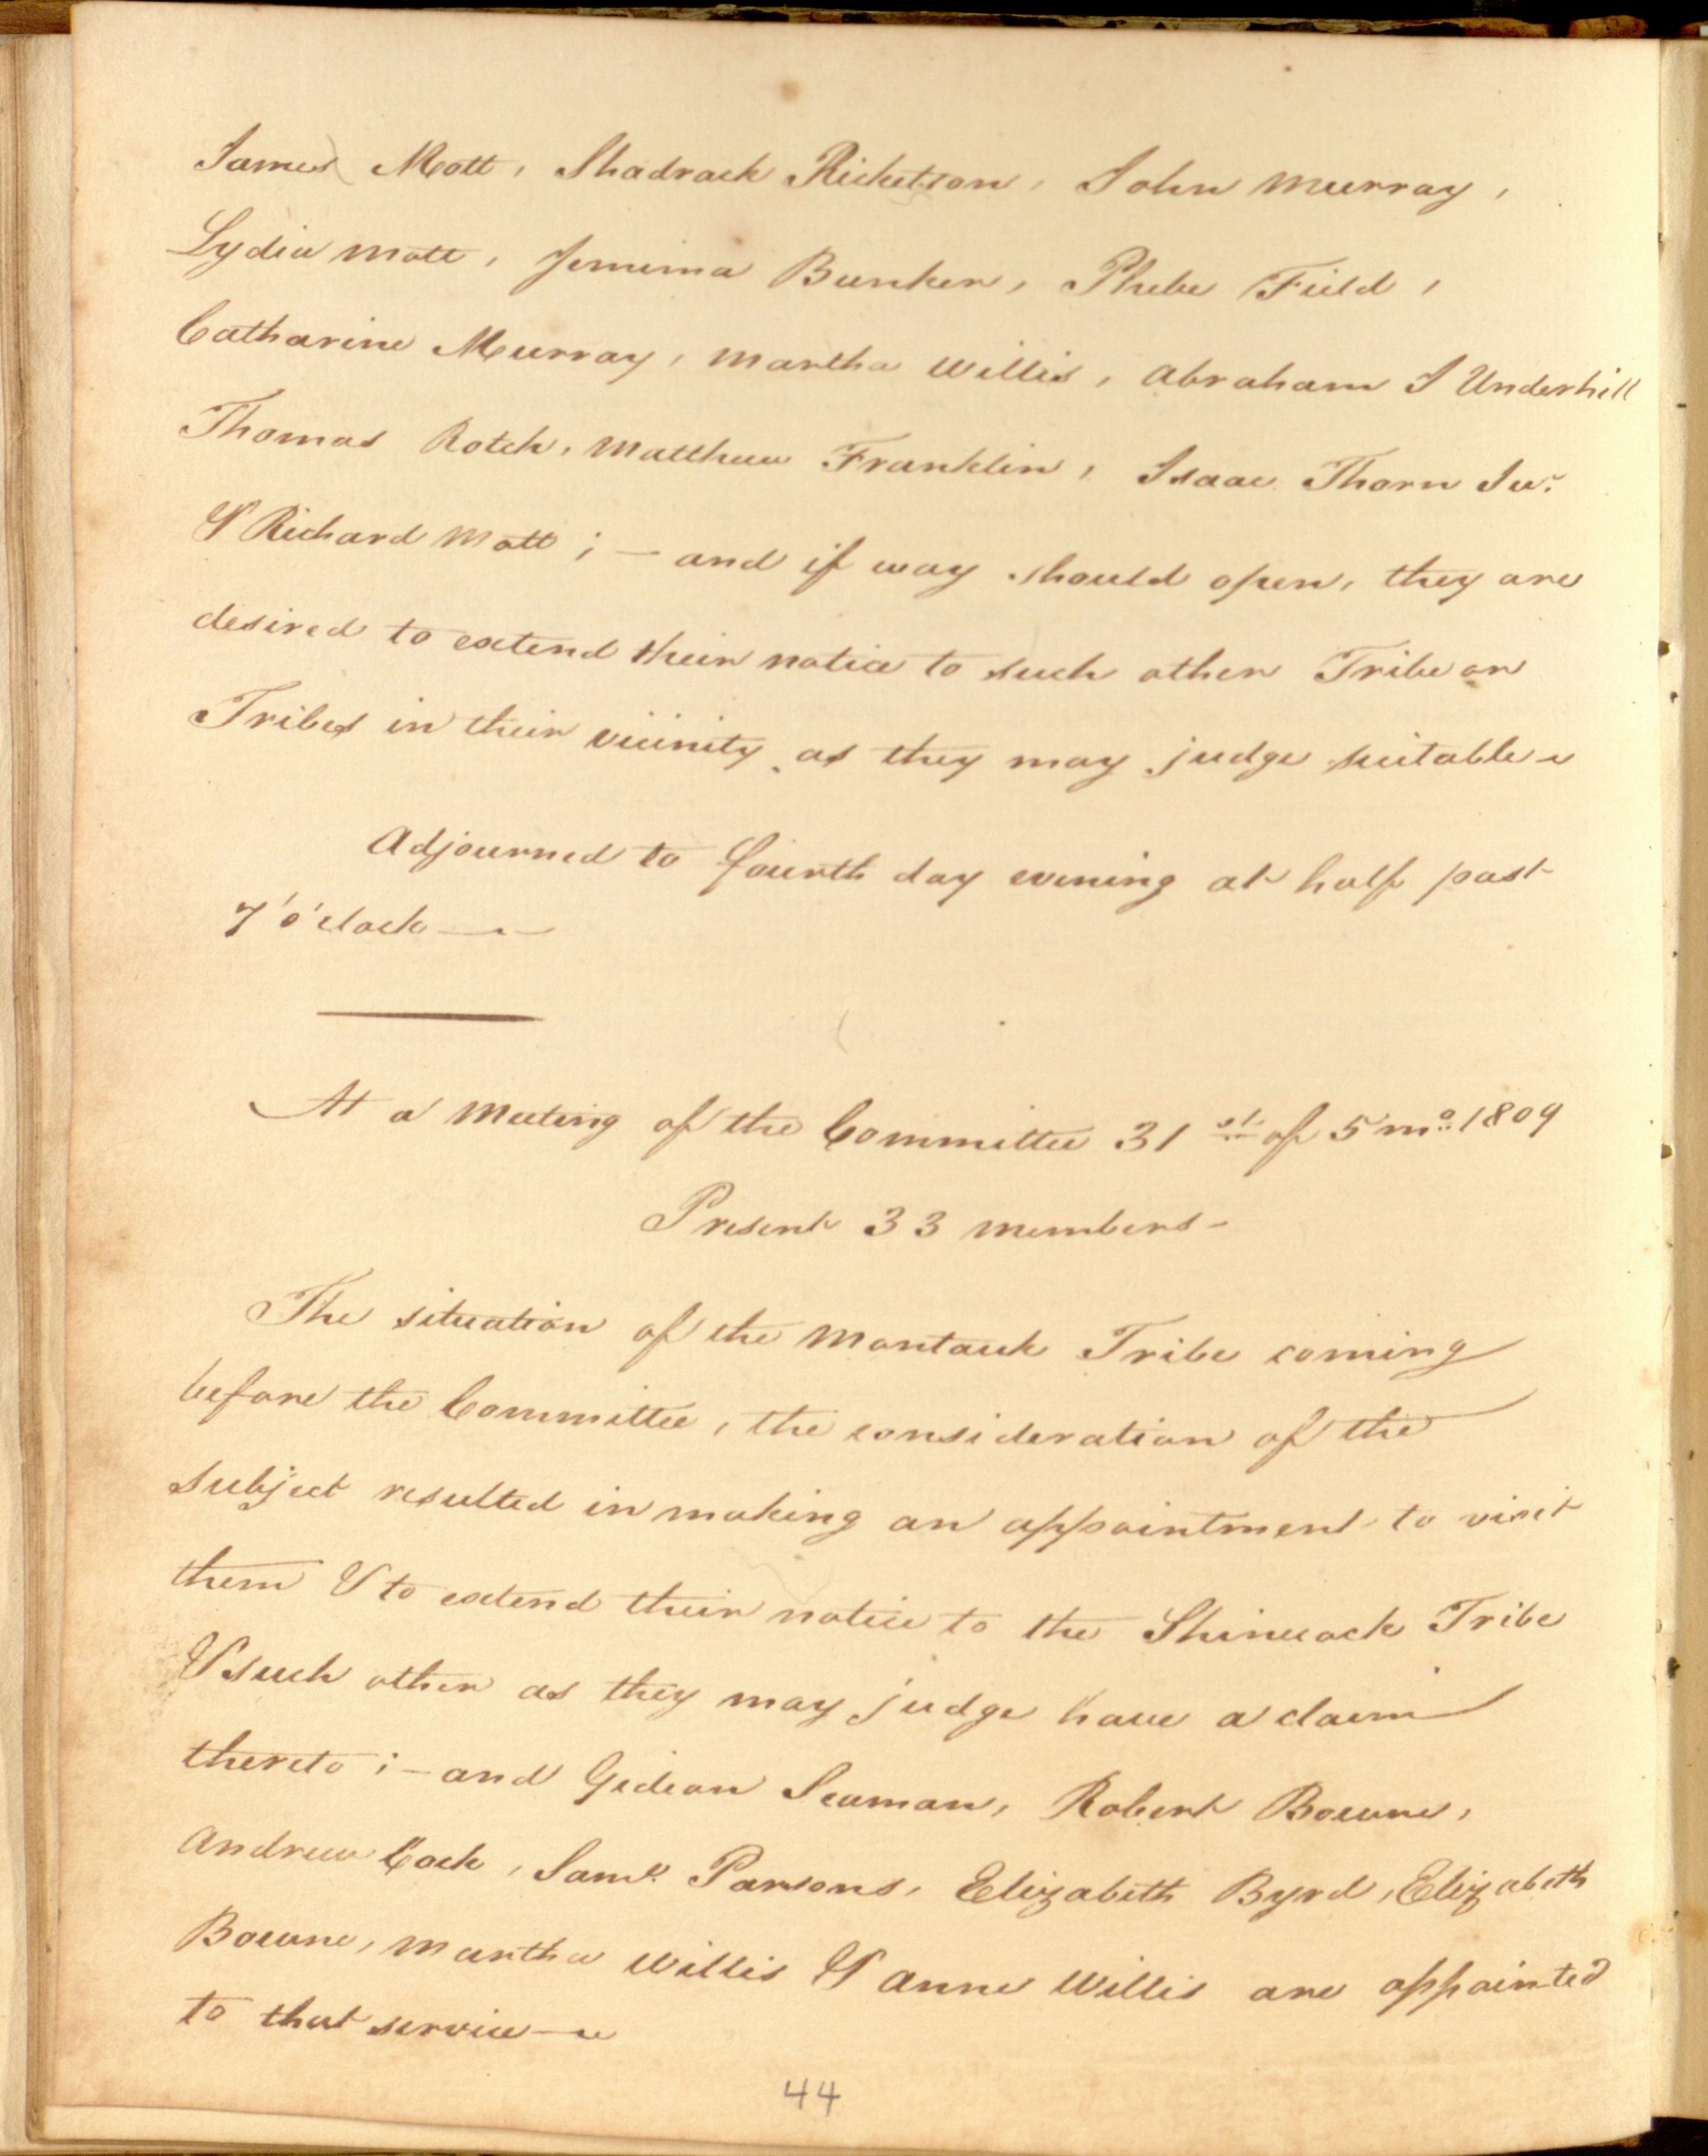 James Mott, Shadrack Ricketson, John Murray,
Lydia Mott, Jemima Bunker, Phebe Field,
Catharine Murray, Martha Willis, Abraham I Underhill
Thomas Rotch, Matthew Franklin, Isaac Thorn Jur.
& Richard Mott ; — and if way should open, they are
desired to extend their notice to such other Tribe or
Tribes in their vicinity as they may judge suitable —
Adjourned to fourth day evening at half past
7 'o'clock —
At a Meeting of the Committee 31st of 5 mo. 1809
Present 33 members -
The situation of the Montauk Tribe coming
before the Committee, the consideration of the
subject resulted in making an appointment to visit
them & to extend their notice to the Shinecock Tribe
& such other as they may judge have a claim
thereto ; — and Gideon Seaman, Robert Bowne,
Andrew Cock, Saml. Parsons, Elizabeth Byrd, Elizabeth
Bowne, Martha Willis & Anne Willis are appointed
to that service —
44